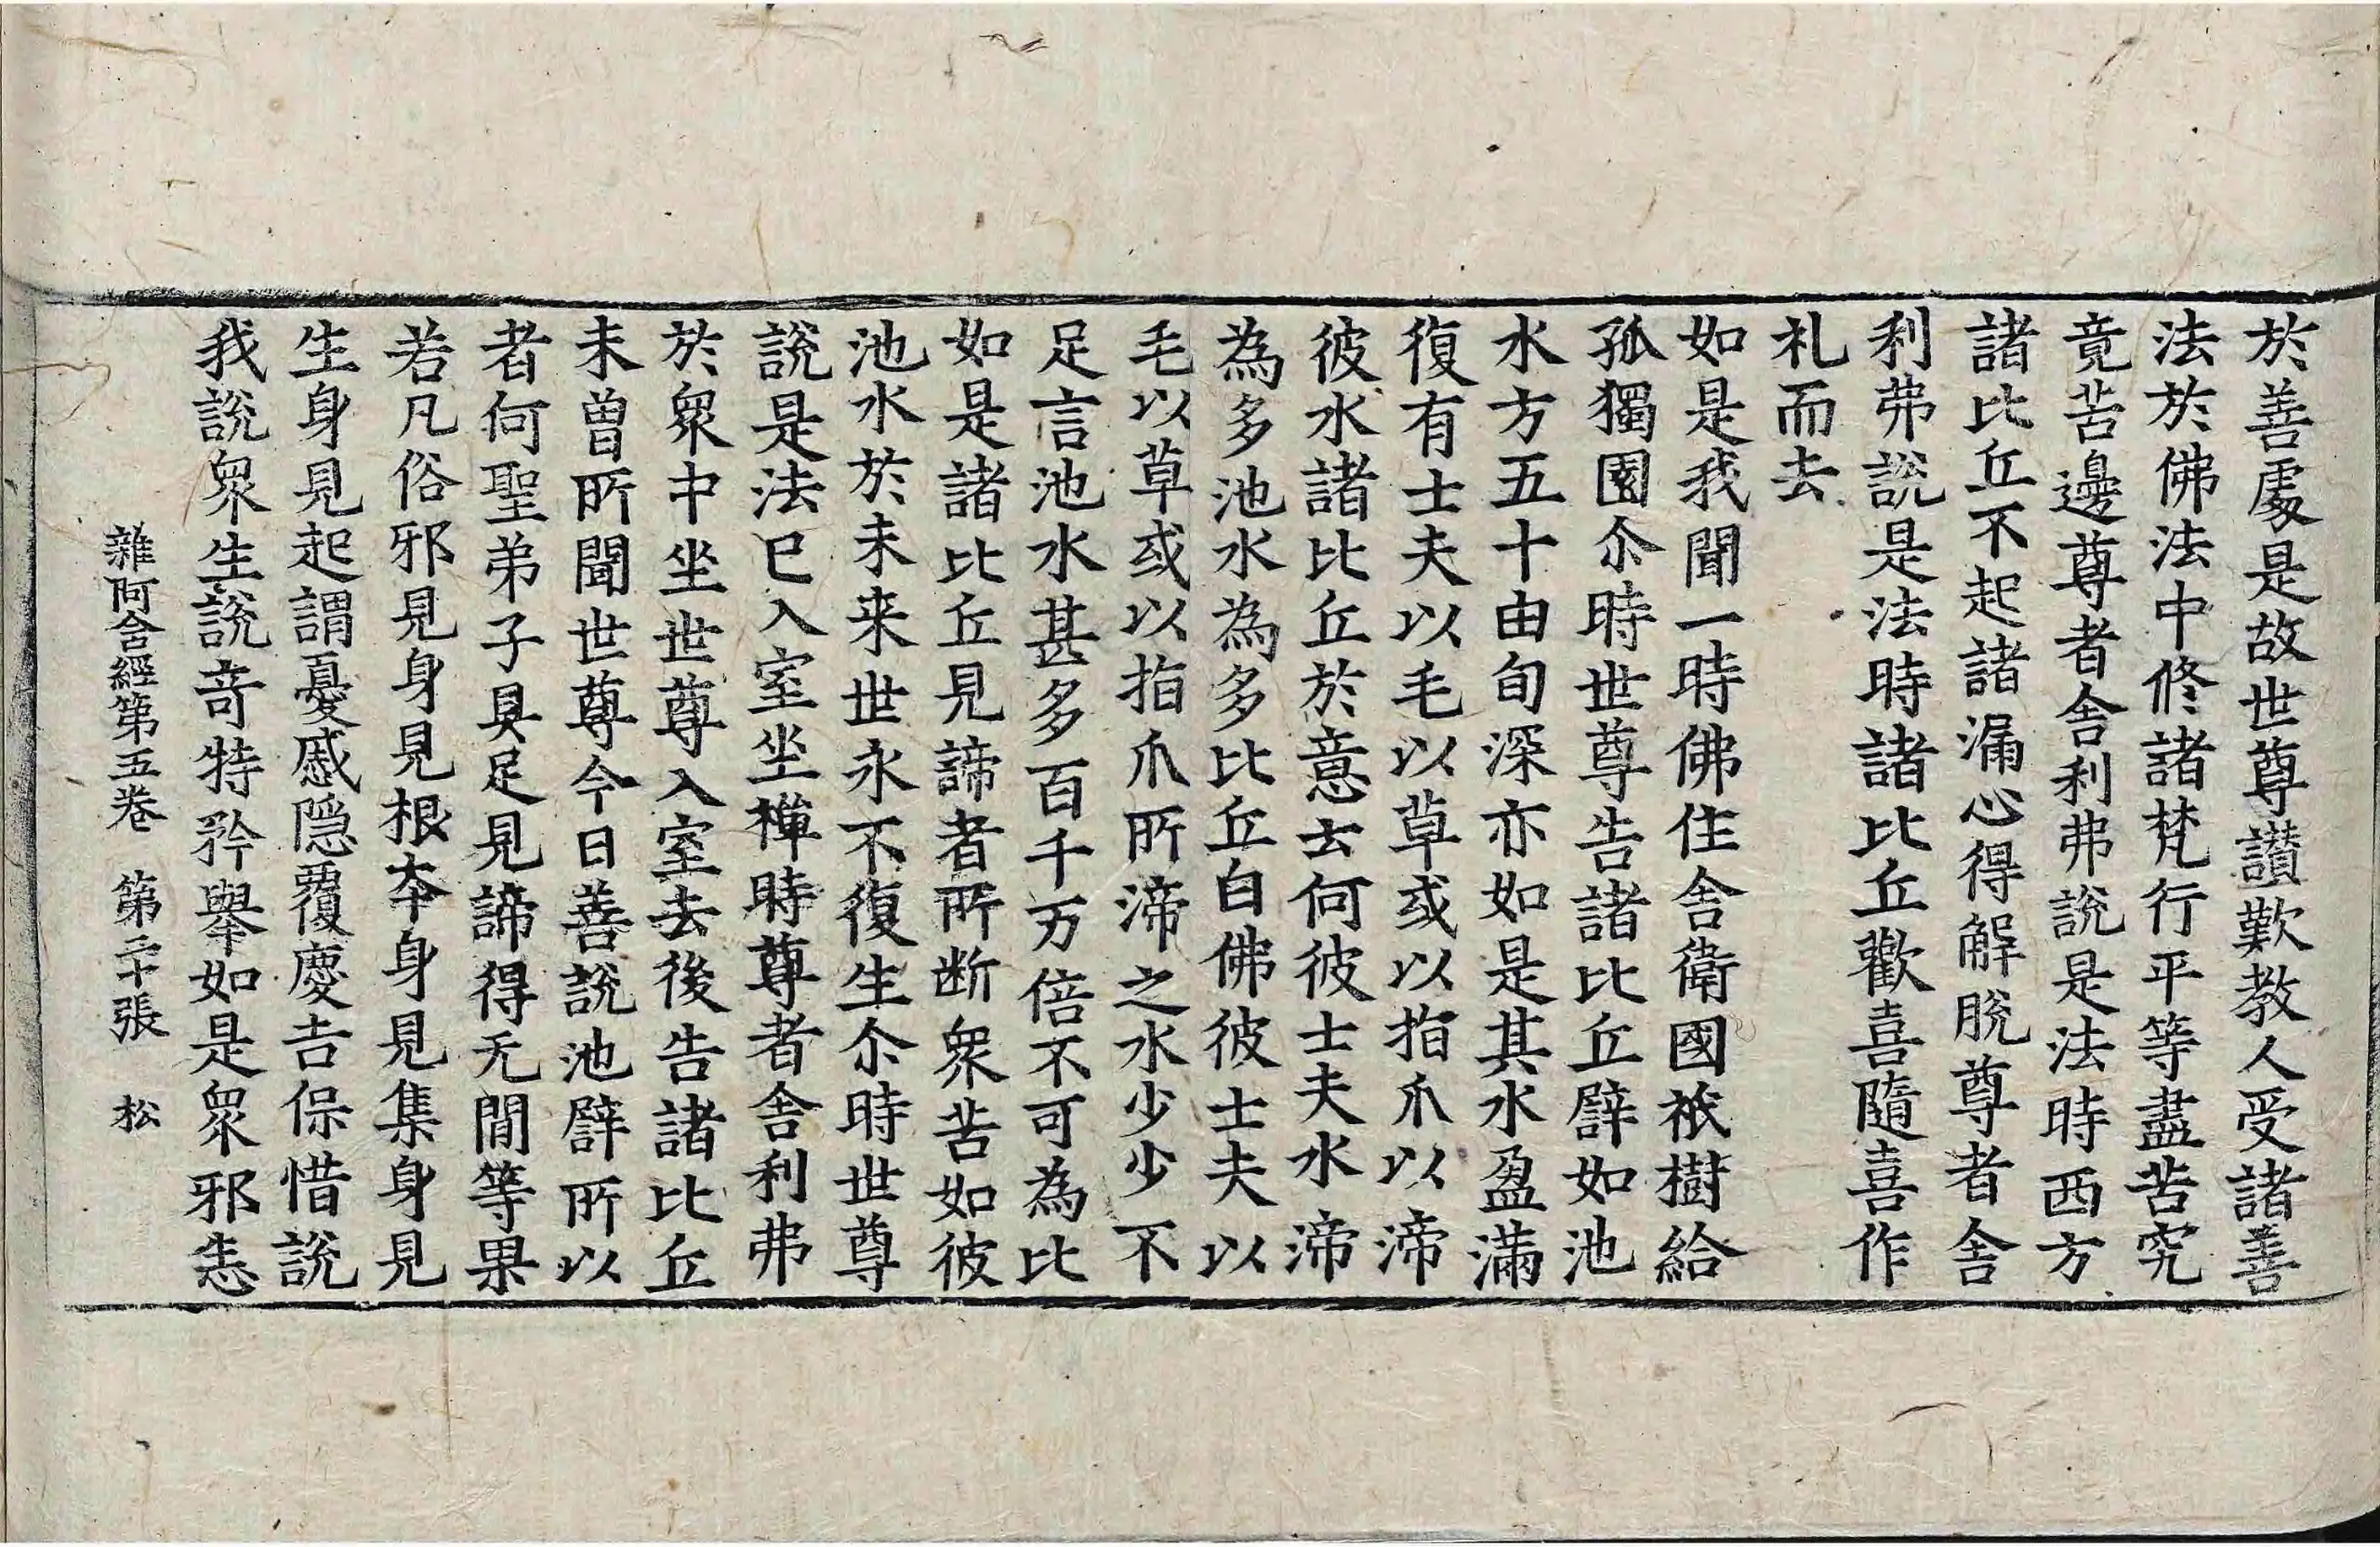 於善處是故世尊讃歎教人受諸善
法於佛法中修諸梵行平等盡苦究
竟苦邊尊者舍利弗說是法時西方
諸比丘不起諸漏心得解脫尊者舍
利弗說是法時諸比丘歡喜隨喜作
礼而去
如是我聞一時佛住舍衛國祇樹給
孤獨園尒時世尊告諸比丘譬如池
水方五十由旬深亦如是其水盈滿
復有士夫以毛以草或以指爪以渧
彼水諸比丘於意云何彼士夫水渧
為多池水為多比丘白佛彼士夫以
毛以草或以指爪所渧之水少少不
足言池水甚多百千万倍不可為比
如是諸比丘見諦者所断衆苦如彼
池水於未来世永不復生尒時世尊
說是法已入室坐禪時尊者舍利弗
於衆中坐世尊入室去後告諸比丘
未曾所聞世尊今日善說池譬所以
者何聖弟子具足見諦得无閒等果
若凡俗邪見身見根本身見集身見
生身見起謂憂慼隱覆慶吉保惜說
我說衆生說竒特矜舉如是衆邪悉
雜阿含經第五卷　第二十張　松